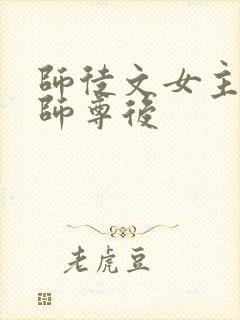 師徒文女主
師尊後
老虎豆